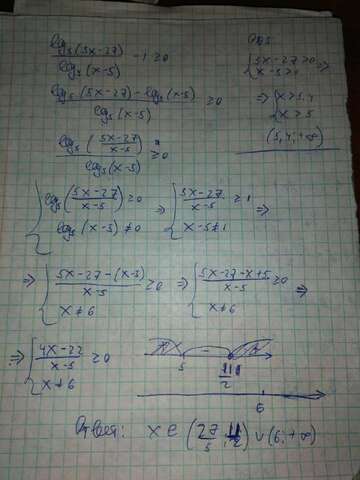 log₅(5x-27)/log₅(x-5) - 1 ≥ 0
ОДЗ:
{5x-27>0
{x-5>0 ⇒
log₅(5x-27) - log₅(x-5)/log₅(x-5) ≥ 0
⇒ {x>5,4
{x>5
(5,4; +∞)
log₅((5x-27)/(x-5))/log₅(x-5) ≥ 0
{log₅((5x-27)/(x-5)) ≥ 0
{log₅(x-5) ≠ 0
⇒ {(5x-27)/(x-5) ≥ 1
{x-5≠1 ⇒
⇒ {(5x-27-(x-5))/(x-5) ≥ 0
{x≠6
⇒ {(5x-27-x+5)/(x-5) ≥ 0
{x≠6 ⇒
⇒ {(4x-22)/(x-5) ≥ 0
{x≠6
5 - 11/2
6
Ответ: x ∈ (27/5; 11/2) ∪ (6; +∞)